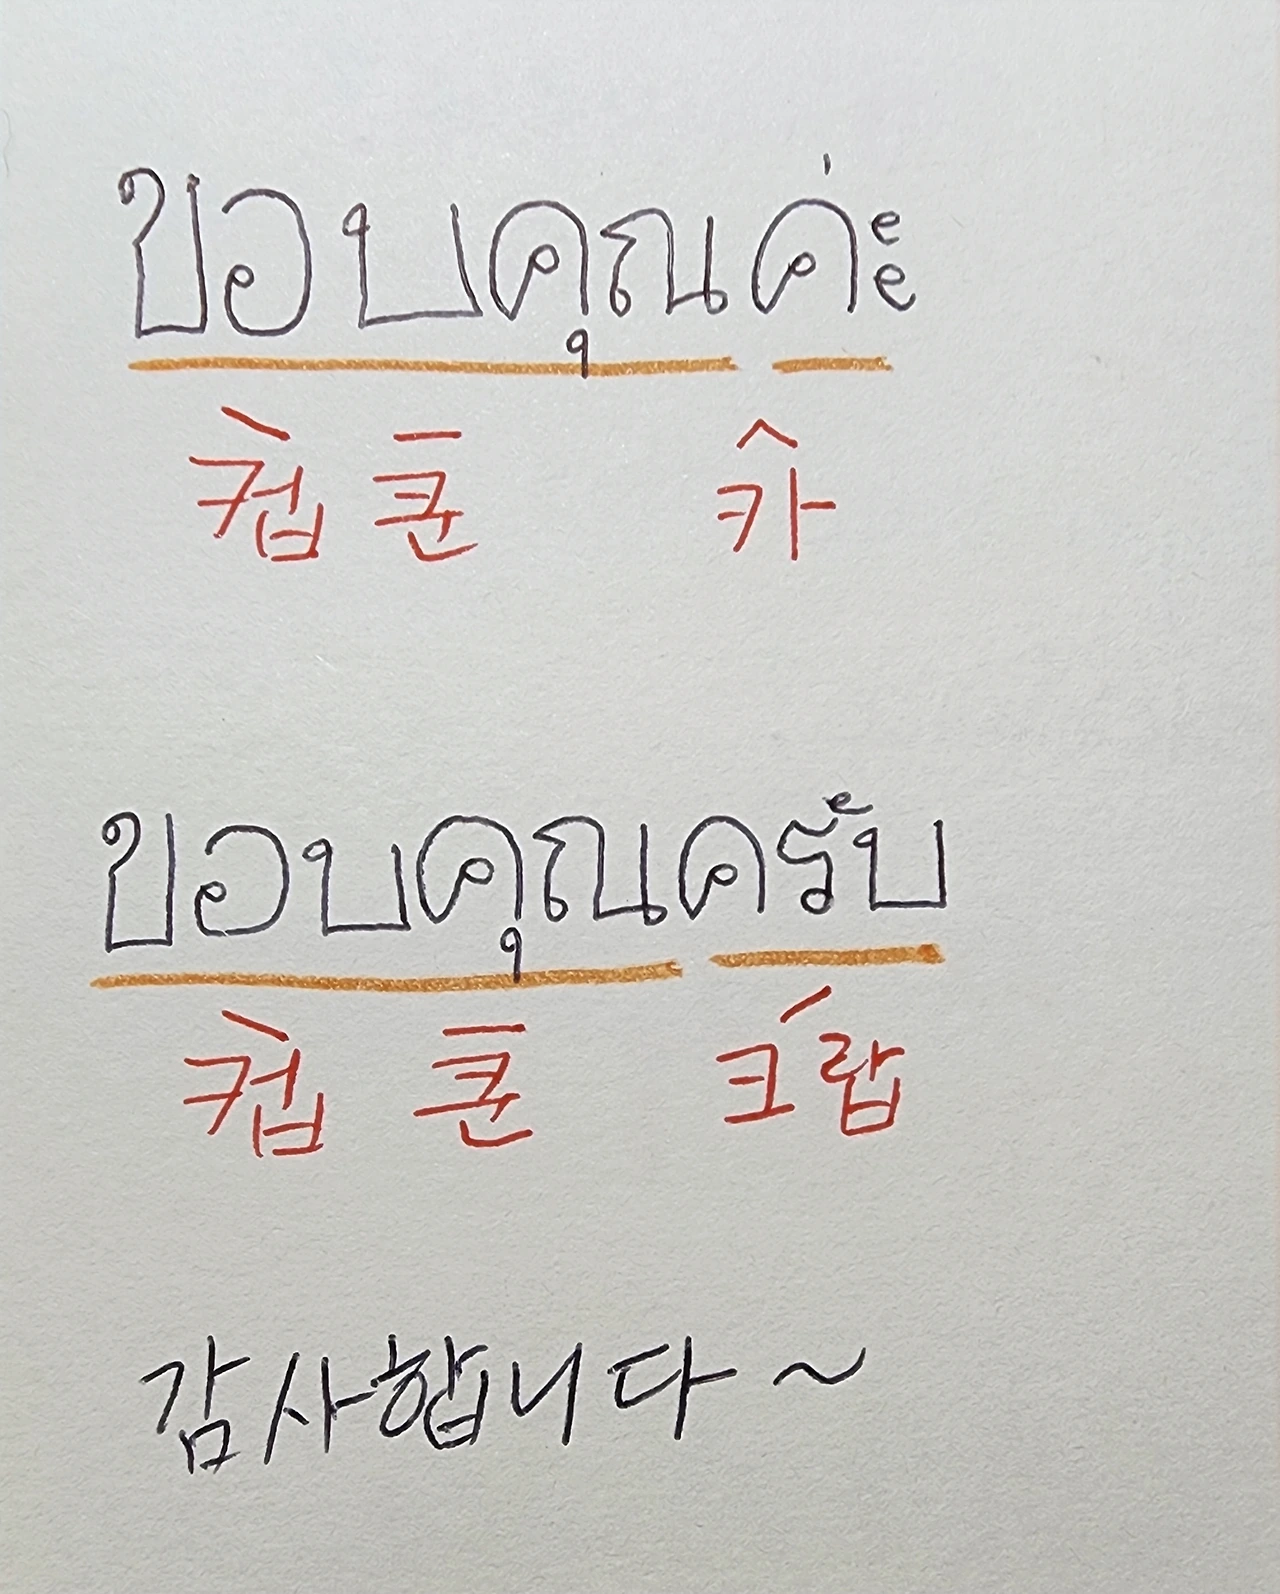 ขอบคุณค่ะ
컵 쿤 카
ขอบคุณครับ
컵 쿤 크랍
감사합니다~